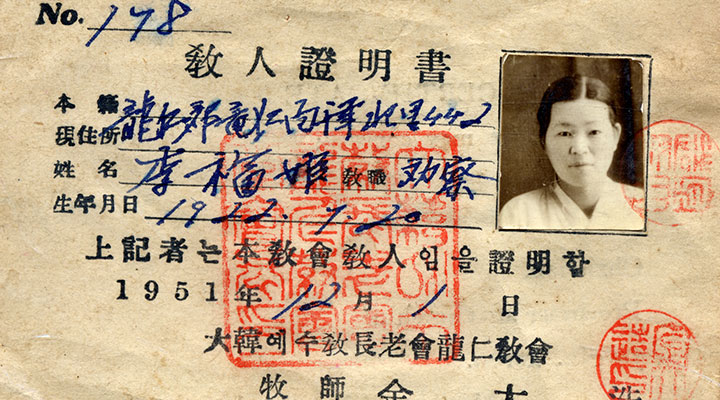 No. 178
敎人證明書
本籍
現住所 龍仁郡龍仁面 里442
姓名 李福姬 敎職 勸察
生年月日 1922. 7. 20
上記者는本敎會敎人임을證明함
1951年 12月 1日
大韓예수敎長老會龍仁敎會
牧師 金